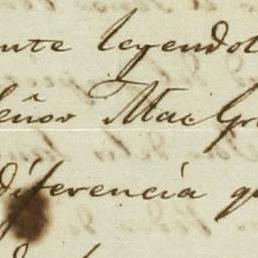 ente leyendol
eñor MacGr
diferencia qu